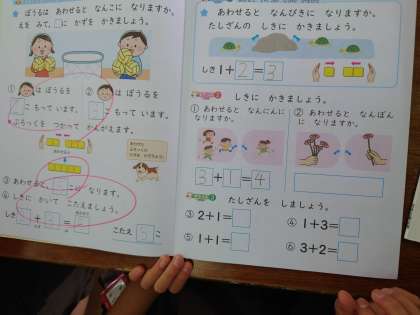 ぼうるは あわせると なんこに なりますか。
えを みて、□に かずを かきましょう。
①
は ぼうるを
2こ もって います。
②
は ぼうるを
こ もって います。
ぶろっくを つかって かんがえます。
③ あわせると、
こに なります。
④ しきに かいて こたえましょう。
しき
こたえ 5こ
あわせると なんびきに なりますか。
たしざんの しきに かきましょう。
しき 1+2=3
しきに かきましょう。
① あわせると なんにんに
なりますか。
3+1=4
② あわせると なんぼんに
なりますか。
たしざんを しましょう。
③ 2+1=
④ 1+3=
⑤ 1+1=
⑥ 3+2=